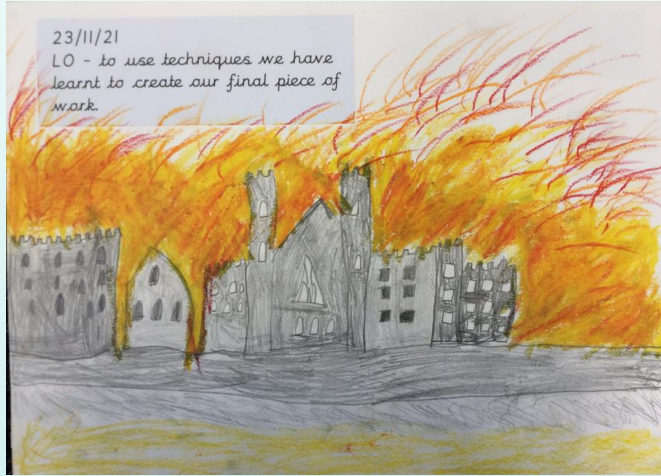 23/11/21
LO - to use techniques we have
learnt to create our final piece of
work.